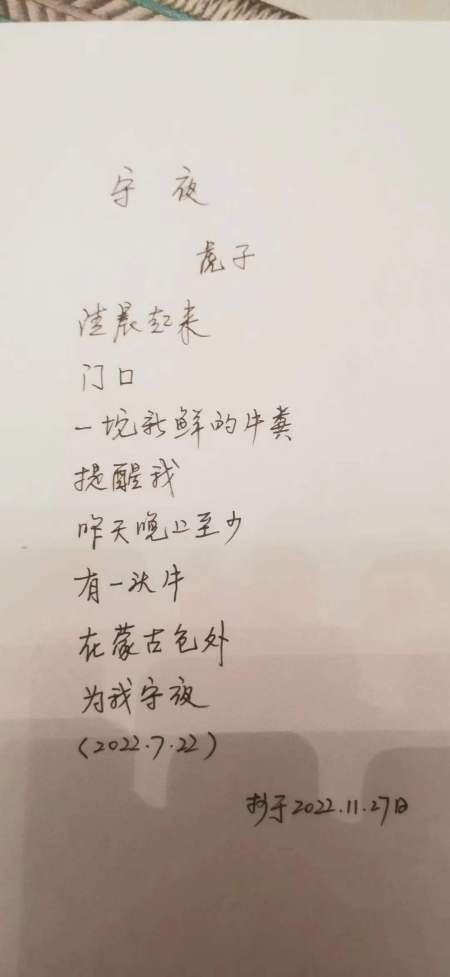 守夜
虎子
清晨起来
门口
一坨新鲜的牛粪
提醒我
昨天晚上至少
有一头牛
在蒙古包外
为我守夜
(2022.7.22)
抄于2022.11.27日